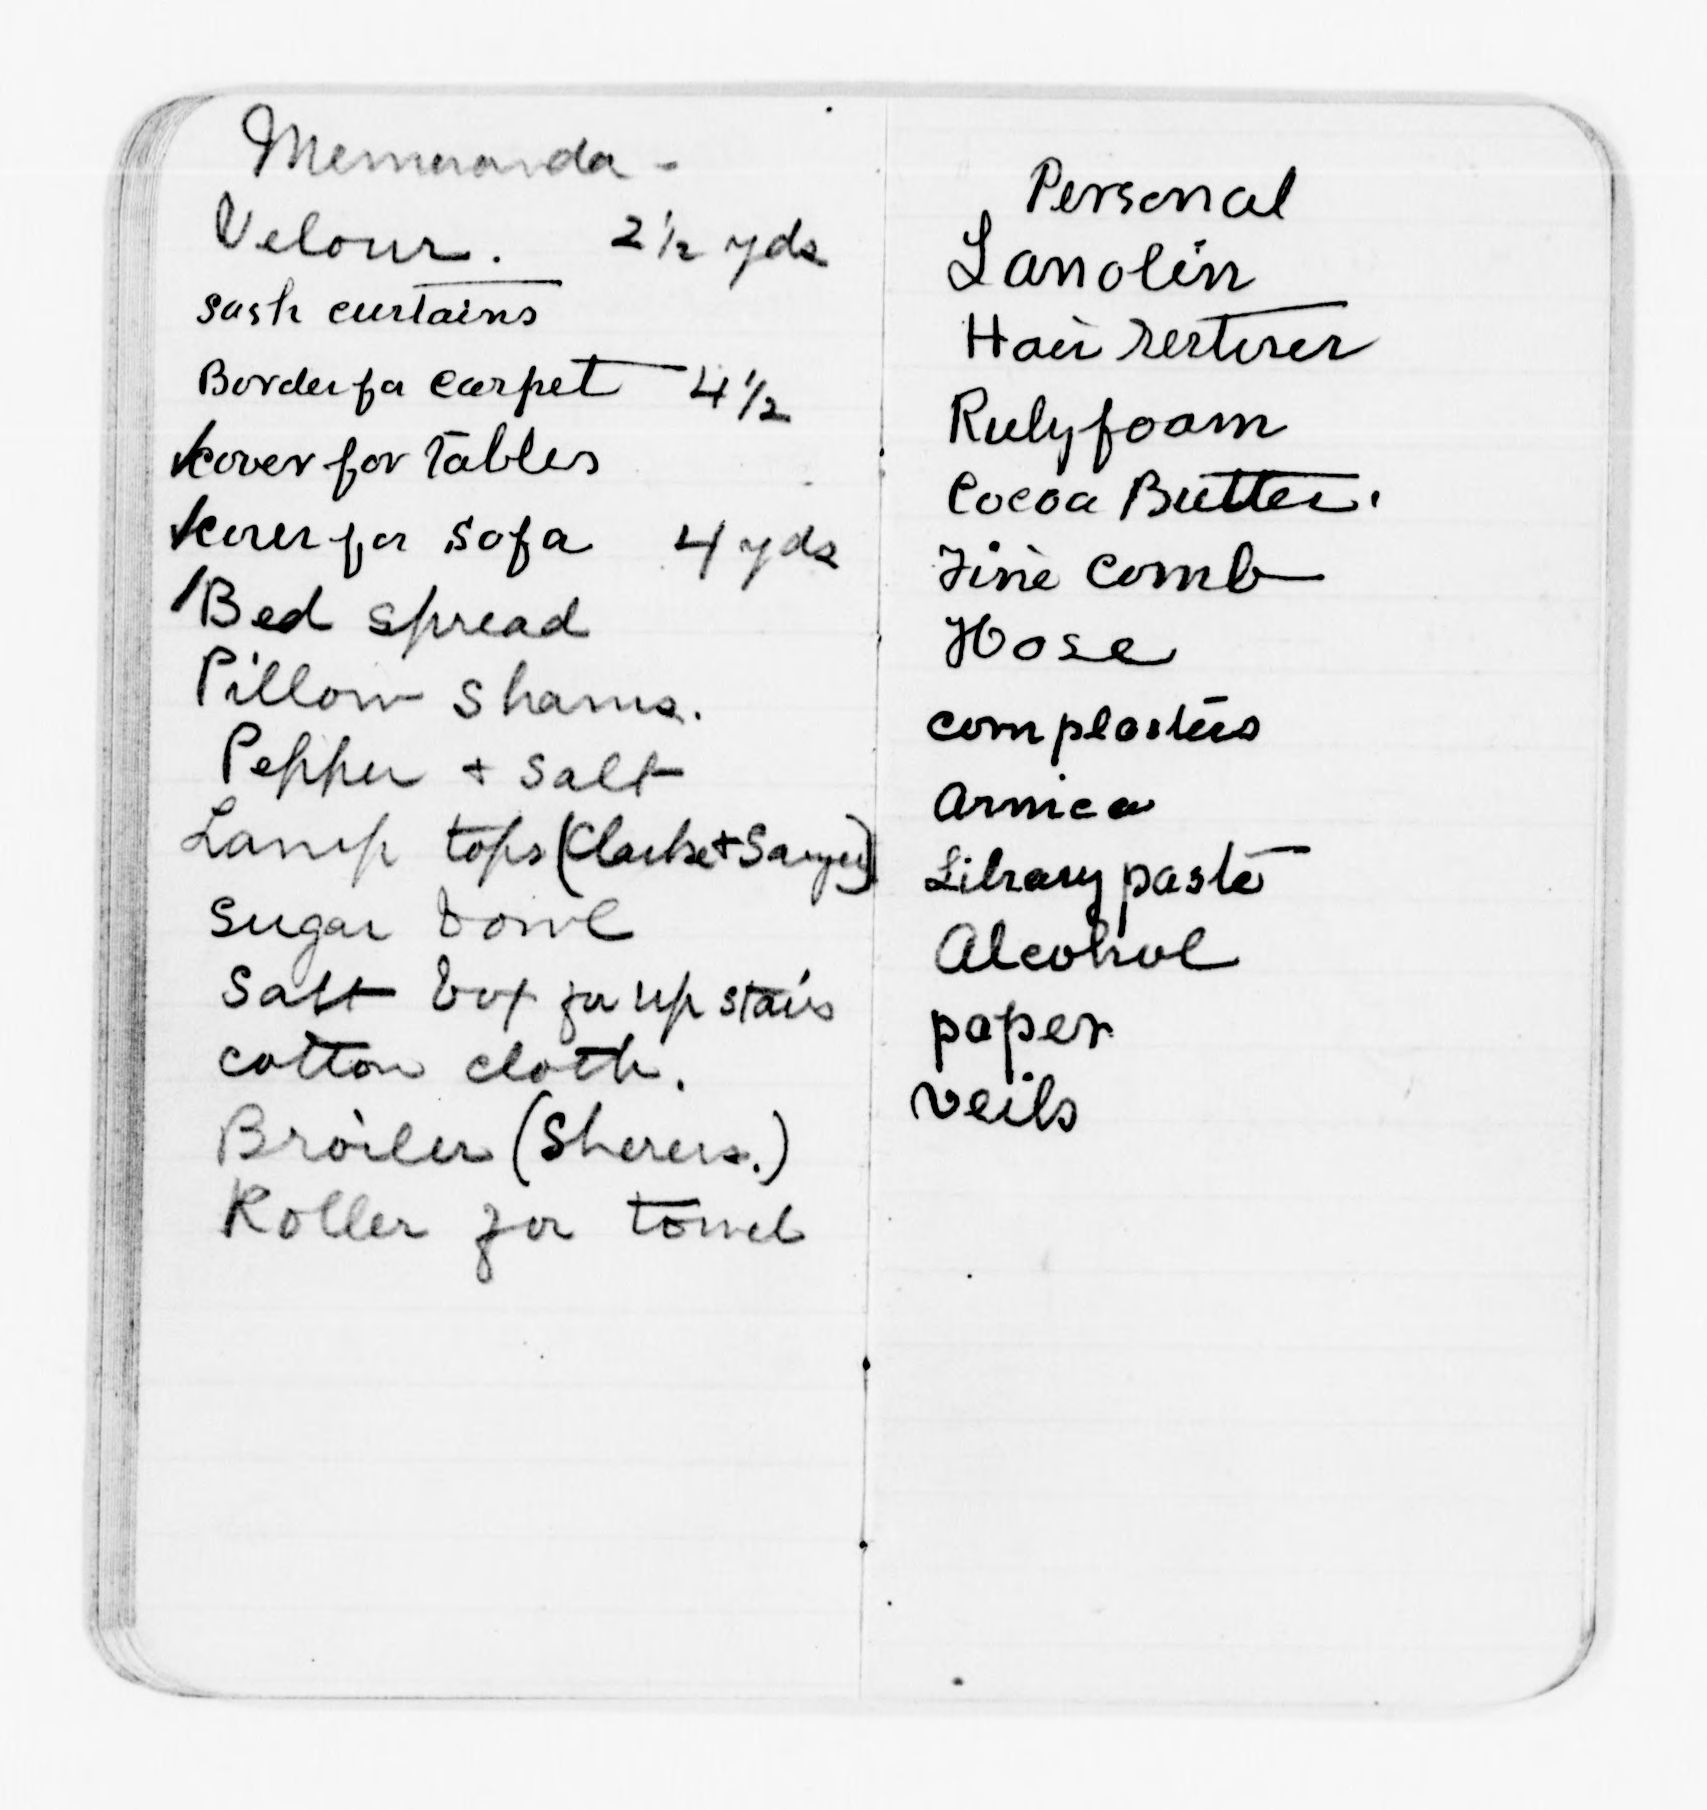 Memoranda -
Velour. 2½ yds
sash curtains
Border for carpet 4½
cover for tables
cover for sofa 4 yds
Bed spread
Pillow shams.
Pepper + salt
Lamp tops (Clarke + Sawyer)
Sugar bowl
Salt box for up stairs
cotton cloth.
Broiler (Sherers.)
Roller for towel
Personal
Lanolin
Hair restorer
Rubyfoam
Cocoa Butter.
Fine comb
Hose
corn plasters
arnica
Library paste
Alcohol
paper
veils